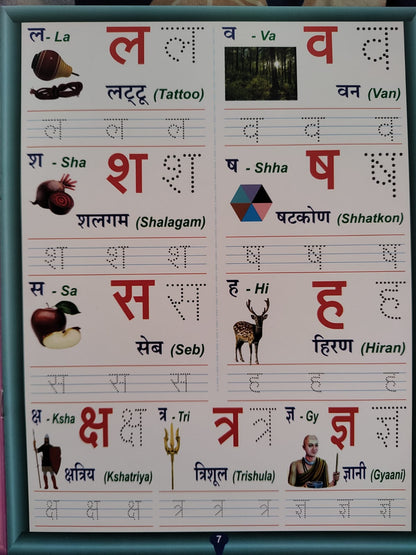 ल - La ल ल
लट्टू (Tattoo)
ल ल ल
व - Va व व
वन (Van)
व व व
श - Sha श श
शलगम (Shalagam)
श श श
ष - Shha ष ष
षटकोण (Shhatkon)
ष ष ष
स - Sa स स
सेब (Seb)
स स स
ह - Hi ह ह
हिरण (Hiran)
ह ह ह
क्ष - Ksha क्ष क्ष
क्षत्रिय (Kshatriya)
क्ष क्ष क्ष
त्र - Tri त्र त्र
त्रिशूल (Trishula)
त्र त्र त्र
ज्ञ - Gy ज्ञ ज्ञ
ज्ञानी (Gyaani)
ज्ञ ज्ञ ज्ञ
7